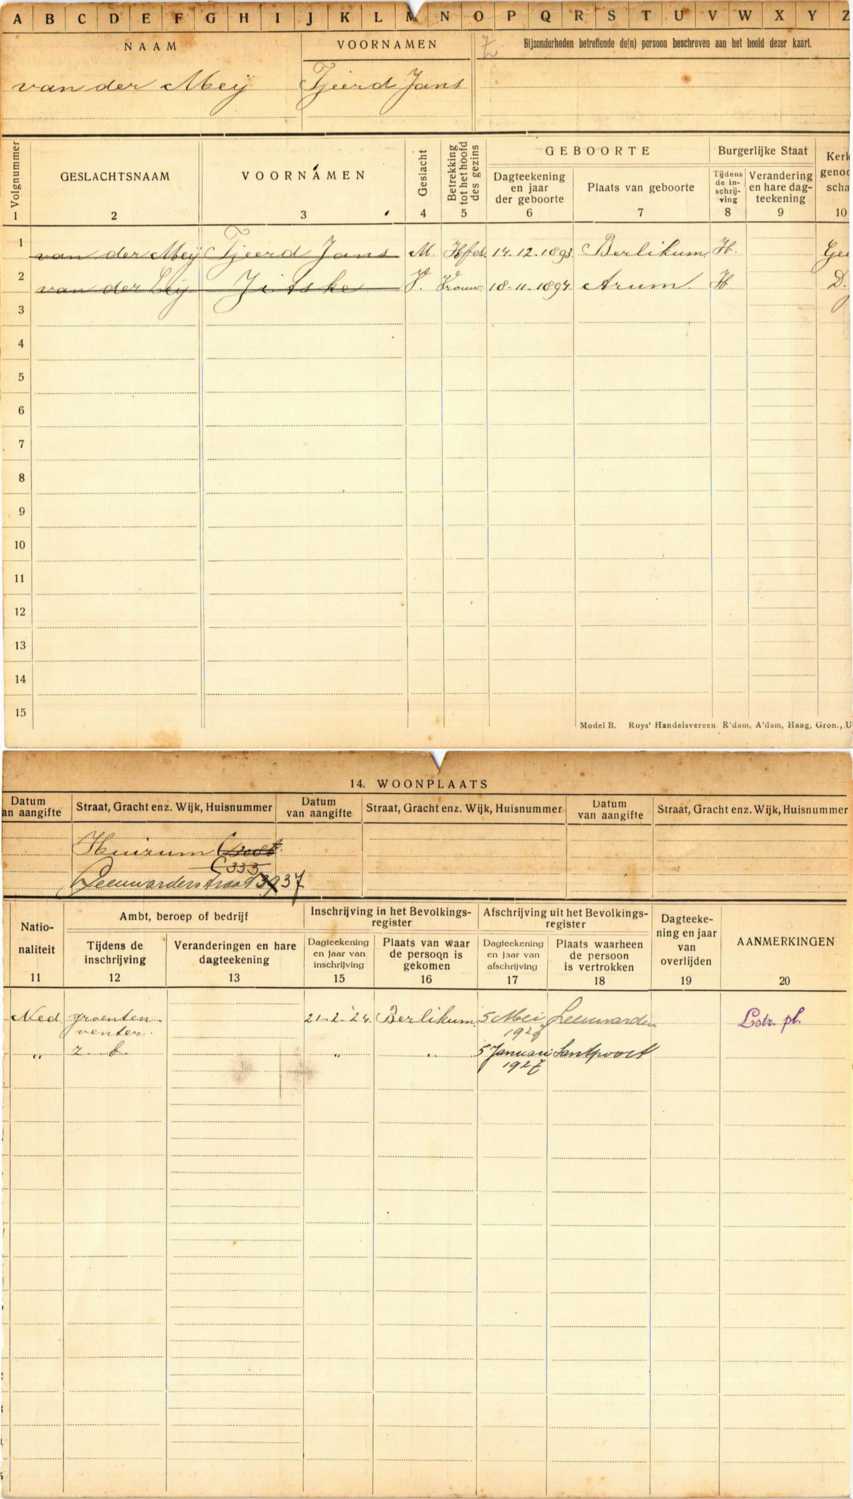 A B C D E F G H I J K L M N O P Q R S T U V W X Y Z
NAAM VOORNAMEN Bijzonderheden betreffende de(n) persoon beschreven aan het hoofd dezer kaart.
van der Meij Tjeerd Jans
Volgnummer GESLACHTSNAAM VOORNAMEN Geslacht Betrekking tot het hoofd des gezins GEBOORTE Burgerlijke Staat
Dagteekening en jaar der geboorte Plaats van geboorte Tijdens de in-schrij-ving Verandering en hare dag-teekening Kerk genoo scha
1 2 3 4 5 6 7 8 9 10
1 van der Meij Tjeerd Jans M. Hfd. 14.12.1893 Berlikum H.
2 van der Leij Jitske V. Vrouw 18-11-1894 Arum. H D.
3
4
5
6
7
8
9
10
11
12
13
14
15
Model B. Ruys' Handelsvereen R'dam, A'dam, Haag, Gron., U
14. WOONPLAATS
Datum an aangifte Straat, Gracht enz. Wijk, Huisnummer Datum van aangifte Straat, Gracht enz. Wijk, Huisnummer Datum van aangifte Straat, Gracht enz. Wijk, Huisnummer
Huizum
C 333
Leeuwarderstraat 39 37
Natio-naliteit Ambt, beroep of bedrijf Inschrijving in het Bevolkings-register Afschrijving uit het Bevolkings-register Dagteeke-ning en jaar van overlijden AANMERKINGEN
Tijdens de inschrijving Veranderingen en hare dagteekening Dagteekening en jaar van inschrijving Plaats van waar de persoon is gekomen Dagteekening en jaar van afschrijving Plaats waarheen de persoon is vertrokken
11 12 13 15 16 17 18 19 20
Ned groenten- 21-2-'24. Berlikum 5 Mei Leeuwarden Lstr. pl.
venter.
" z. b. " " 5 Januari Santpoort
1927